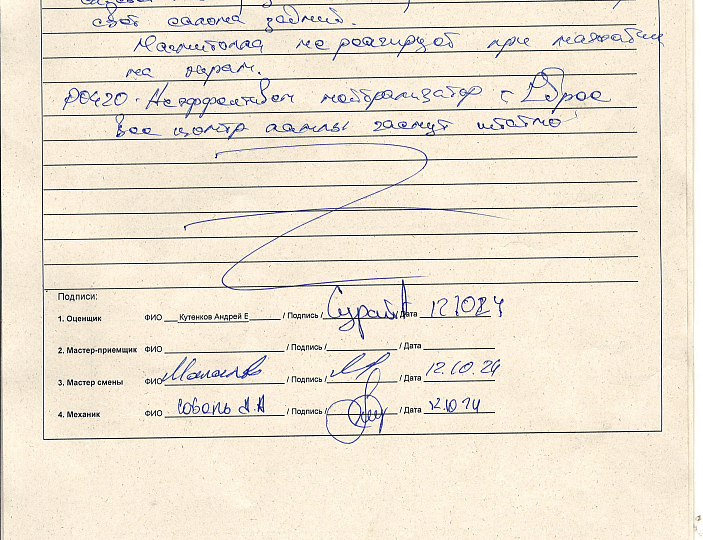 свет салона задний.
Магнитола не реагирует при нажатии
на экран.
P0420 - Неэффективен нейтрализатор с
Все контр лампы гаснут штатно
Подписи:
1. Оценщик ФИО Кутенков Андрей Е / Подпись / / Дата 12.10.24
2. Мастер-приемщик ФИО / Подпись / / Дата
3. Мастер смены ФИО / Подпись / / Дата 12.10.24
4. Механик ФИО Соболь А.А / Подпись / / Дата 12.10.24